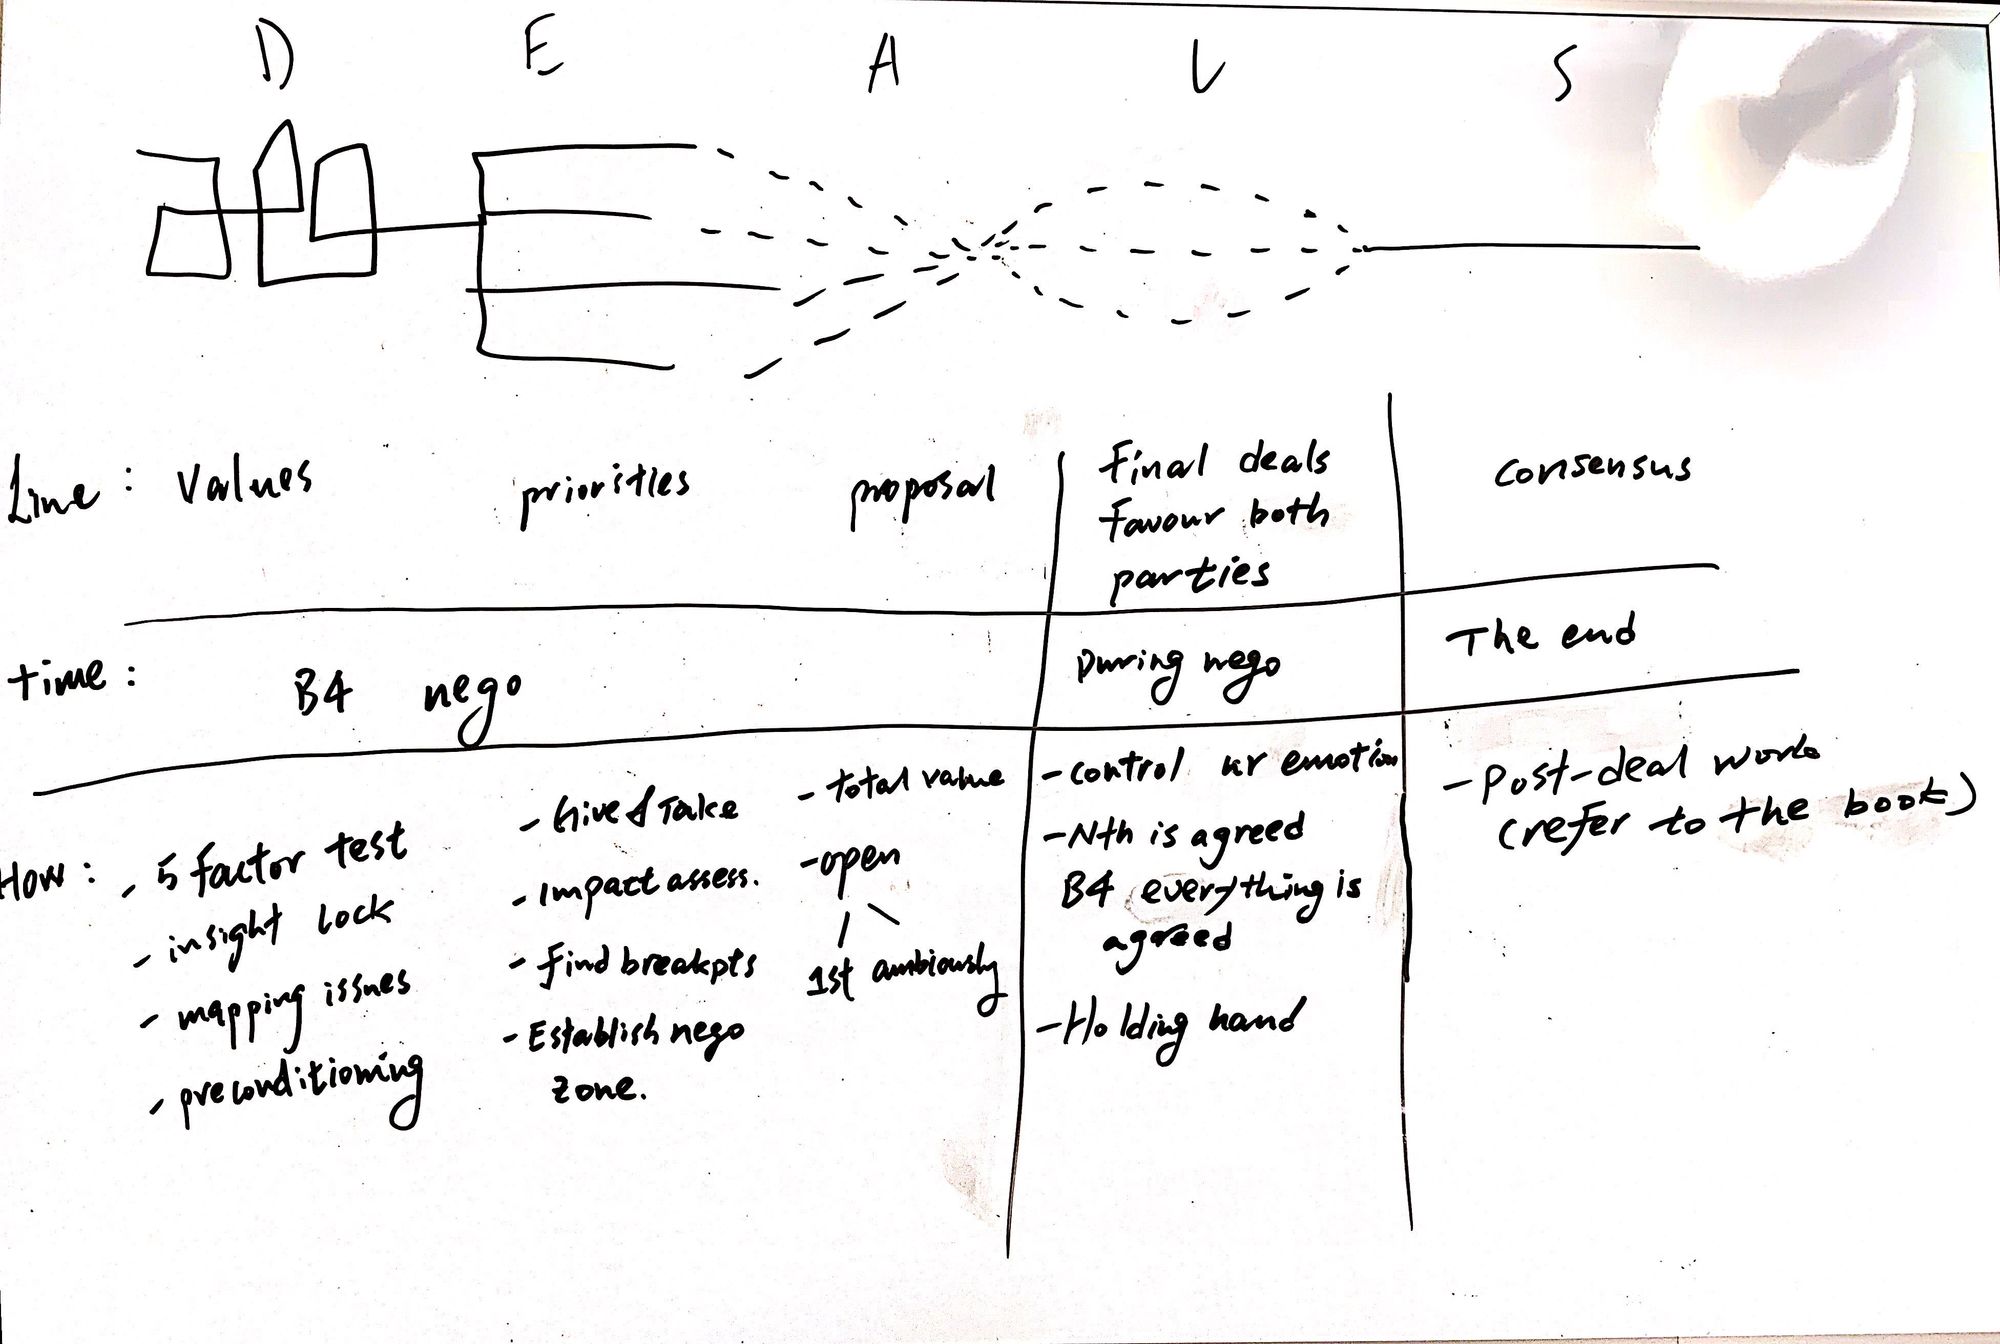 D E A L S
Line : Values priorities proposal Final deals consensus
favour both
parties
time : B4 nego During nego The end
How : - 5 factor test
- insight lock
- mapping issues
- preconditioning
- Give & Take
- Impact assess.
- find breakpts
- Establish nego
zone.
- total value
- open
1st ambiously
- control ur emotion
- Nth is agreed
B4 everything is
agreed
- Holding hand
- Post-deal work
(refer to the book)